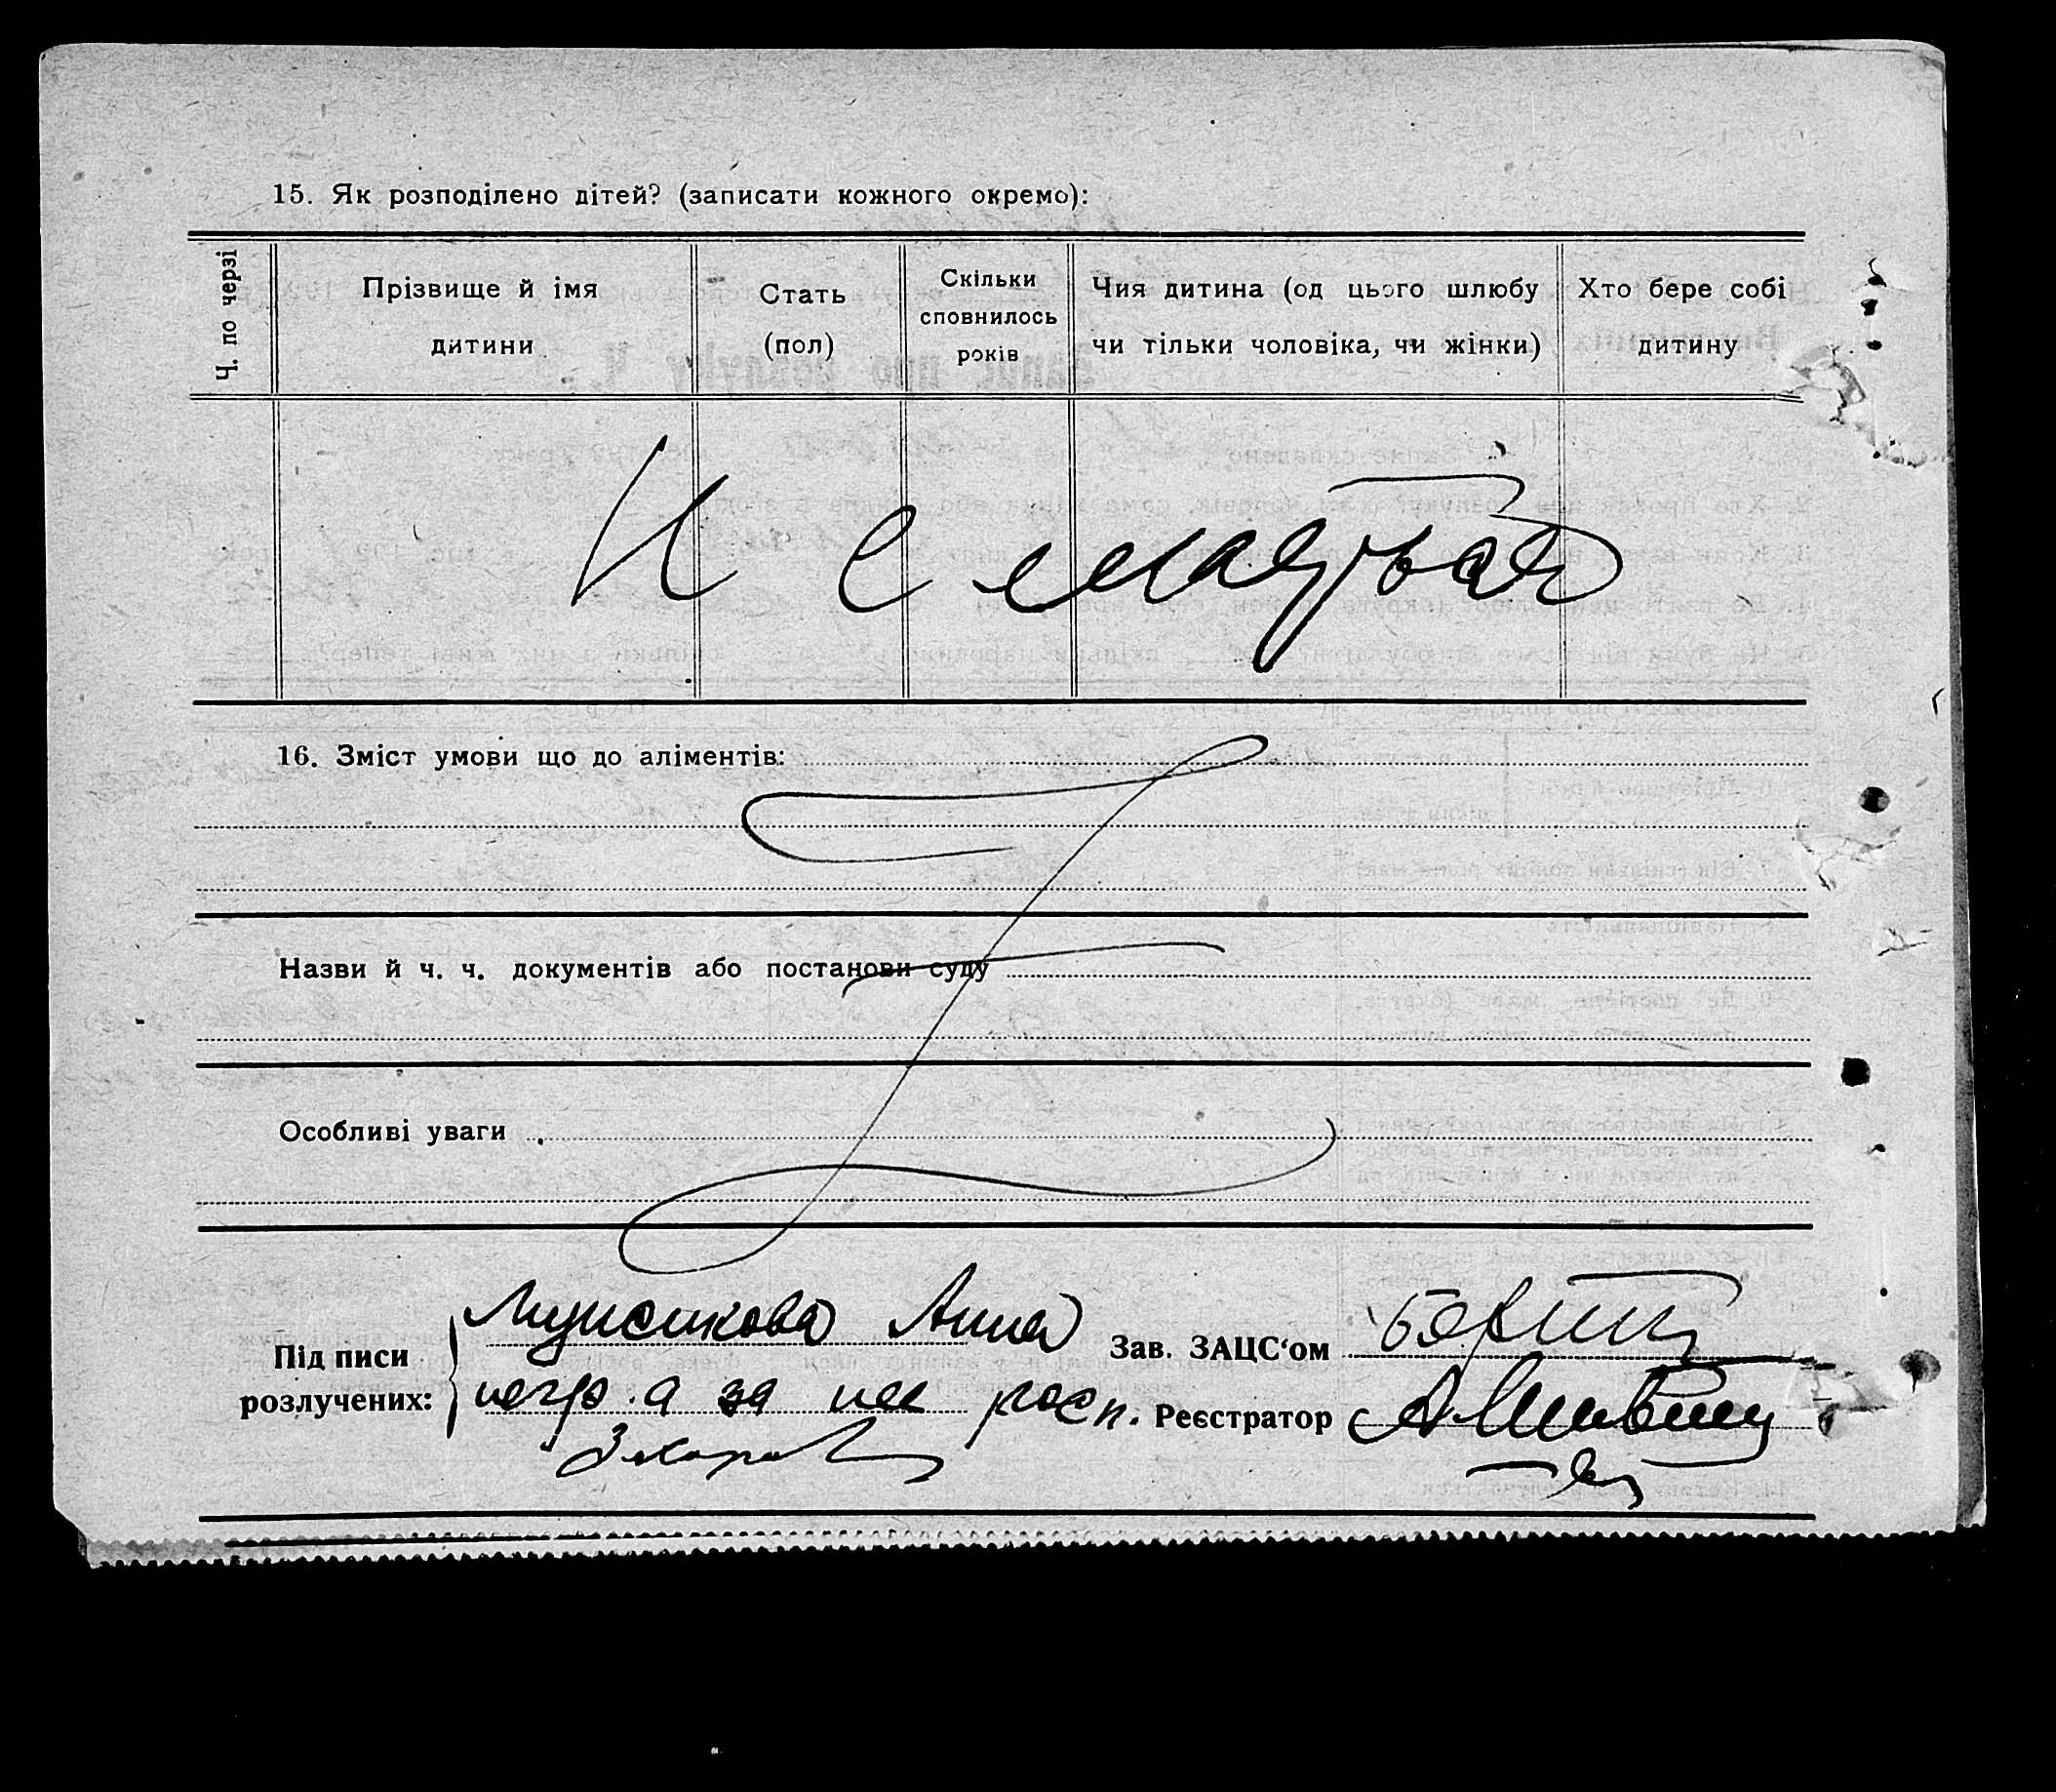 15. Як розподілено дітей? (записати кожного окремо):
Ч. по черзі
Прізвище й імя дитини
Стать (пол)
Скільки сповнилось років
Чия дитина (од цього шлюбу чи тільки чоловіка, чи жінки)
Хто бере собі дитину
16. Зміст умови що до аліментів:
Назви й ч. ч. документів або постанови суду
Особливі уваги
Під писи розлучених:
Анна
Зав. ЗАЦС‘ом
негр. а за нее расп.
Реєстратор